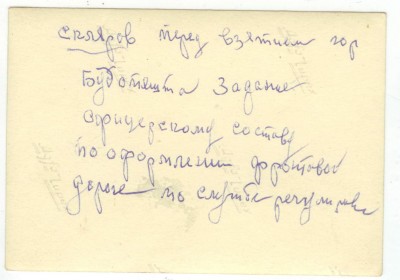 Скляров перед взятием гор
Будопешта Задание
офицерскому составу
по оформлении фронтовой
дороге по службе регулировке